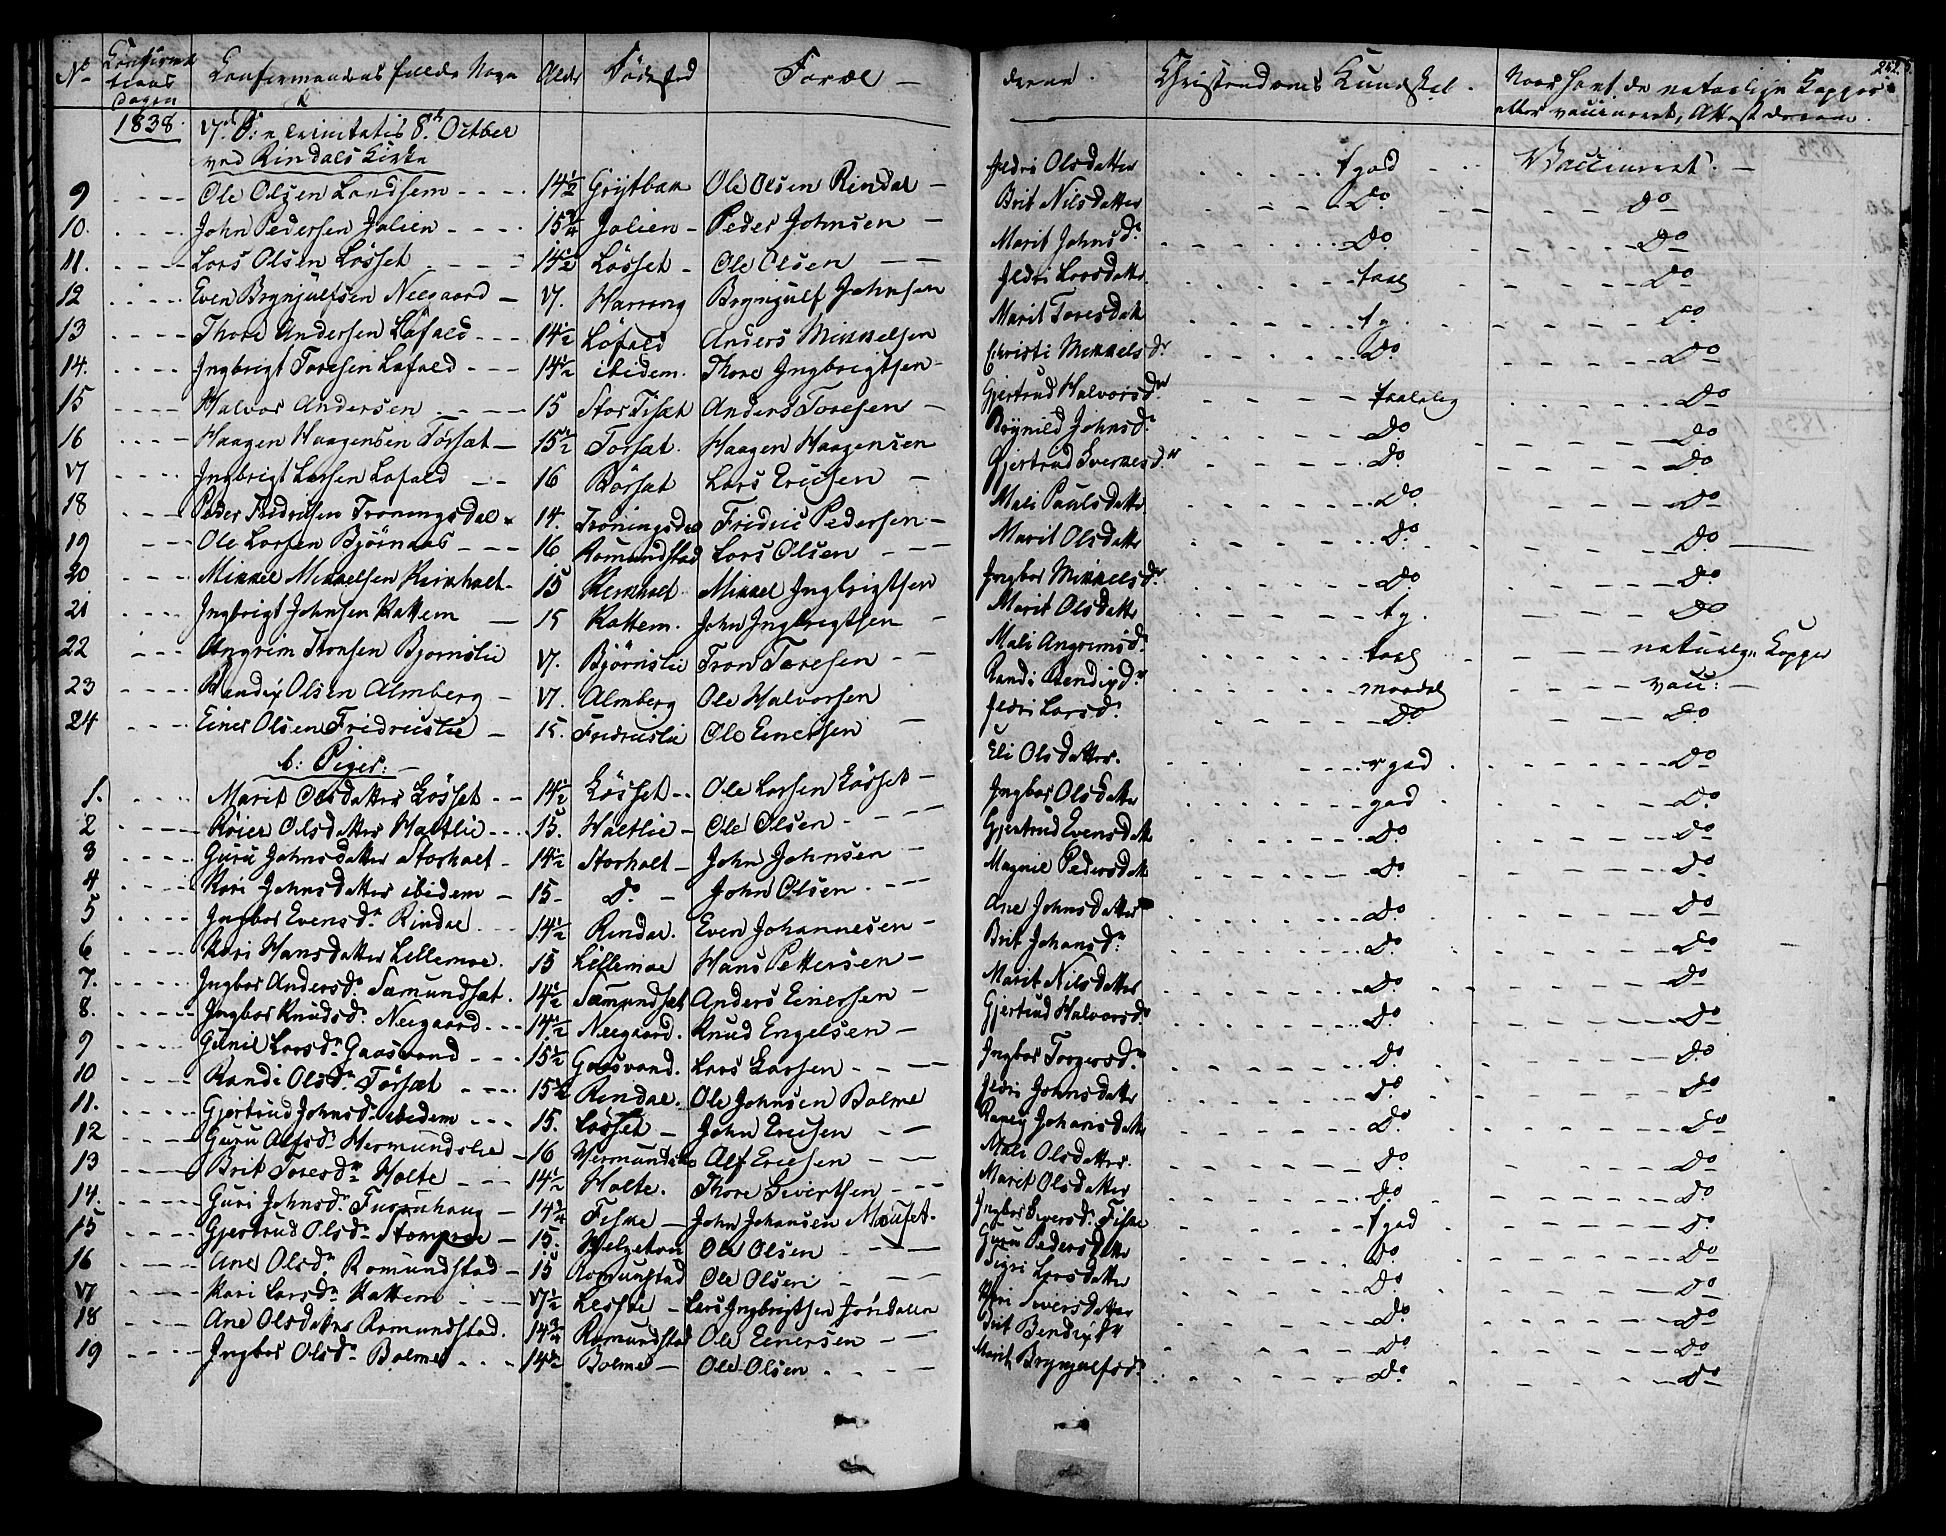 252.
No Confirmations Dagen Confirmandens fulde Navn Alder Födested Foræl- deren. Christendoms Kundskab. Naar havt de naturlige Kopper eller vaccineret, Attest derom.
1838. 17de S: n Trinitatis 8de Octber
ved Rindals Kirke
9 Ole Olsen Landsem 14½ Gröjtbak Ole Olsen Rindal Jldri Olsdatter t god Vaccineret.
10. John Pedersen Jolien 15¾ Jolien Peder Johnsen Brit Nilsdatter Do Do
11. Lars Olsen Lösset 14½ Lösset Ole Olsen Marit Johnsdr Do Do
12 Even Brynjulfsen Neegaard 17. Harrang Brynjulf Johnsen Jldri Larsdatter taal Do
13 Thore Andersen Löfald 14½ Löfald Anders Mikkelsen Marit Toresdatt tg. Do
14. Jngbrigt Toresen Lofald 14½ ibidem. Thore Jngbrigtsen Christi Mikkelsdr Do Do
15 Halvor Andersen 15 Stor Fisket Anders Toresen Gjertrud Halvorsdr taalelig Do
16 Haagen Haagensen Torset 15½ Torset. Haagen Haagensen Brynild Johnsdr Do Do
17 Jngbrigt Larsen Lofald 16 Börset Lars Ericsen Gjertrud Sverkesdr Do Do
18 Peder Fredricsen Troningsdal 14. Troningsdal Fridric Pedersen Mali Paulsdatter Do Do
19 Ole Larsen Björnaas 16 Romundstad Lars Olsen Marit Olsdatter Do Do
20 Mikkel Mikkelsen Kirkholt 15 Kirkholt Mikkel Jngbrigtsen Jngbor Mikkelsdr Do Do
21 Jngbrigt Johnsen Kattem 15 Kattem. John Jngbrigtsen Marit Olsdatter tg. Do
22 Angrim Tronsen Bjornslie 17. Björnslie Tron Toresen Mali Angrimsdr taal naturlge Kopper
23 Bendix Olsen Almberg 17. Almberg Ole Halvorsen Randi Bendixdr maadel vacc:
24 Einer Olsen Fridricslie 15. Fridricslie Ole Einersen Jldri Larsdr Do Do
b: Piger:
1. Marit Olsdatter Lösset 14½ Lösset Ole Larsen Lösset Eli Olsdatter. god Do
2 Röier Olsdatter Haltlie 15. Haltlie Ole Olsen Jngbor Olsdatter god Do
3 Guru Johnsdatter Storholt 14½ Storholt John Johnsen Gjertrud Evensdatt Do Do
4 Kari Johnsdatter ibidem 15 Do John Olsen Magnil Pedersdatt Do Do
5 Jngbor Evensdr Rindal 14½ Rindal. Even Johannesen Ane Johnsdatter Do Do
6 Kari Hansdatter Lillemoe 15 Lillemoe Hans Pettersen Brit Johansdr Do Do
7. Jngbor Andersdr Sæmundset. 14½ Sæmundset Anders Einersen Marit Nilsdatter Do Do
8. Jngbor Knudsdr Neegaard 14½ Neegaard. Knud Engelsen Gjertrud Halvorsdr Do Do
9 Gunil Larsdr Gaasvand 15½ Gaasvand. Lars Larsen Jngbor Torgersdr Do Do
10 Randi Olsdr Törset 15½ Rindal. Ole Johnsen Bolme Jldri Johnsdatter Do Do
11. Gjertrud Johnsdr ibidem 15. Lösset John Ericsen Raney Johansdatt Do Do
12 Guru Alfsdr Hermundslie 16 Hermundslie Alf Ericsen Mali Olsdatter. Do Do
13 Brit Toresdr Holte 14½ Holte. Thore Sivertsen Marit Olsdatter Do Do
14. Guri Johnsdr Furruhaug 14¾ Fiske John Johansen Jngbor Siversdr Fiske t god Do
15 Gjertrud Olsdr Stomproe 15. Helgetun Ole Olsen Guru Pedersdatter Do Do
16 Ane Olsdr Romundstad 15 Romunstad Ole Olsen Sigri Larsdatter Do Do
17 Kari Larsdr Kattem 17½ Lars Jngbrigtsen Jöndalen Kari Siversdatter Do Do
18 Ane Olsdatter Romundstad. 14¾ Romundstad Ole Einersen Brit Bendixdr Do Do
19 Jngbor Olsdr Bolme 14½ Bolme Ole Olsen Marit Brynjulfsdr Do Do